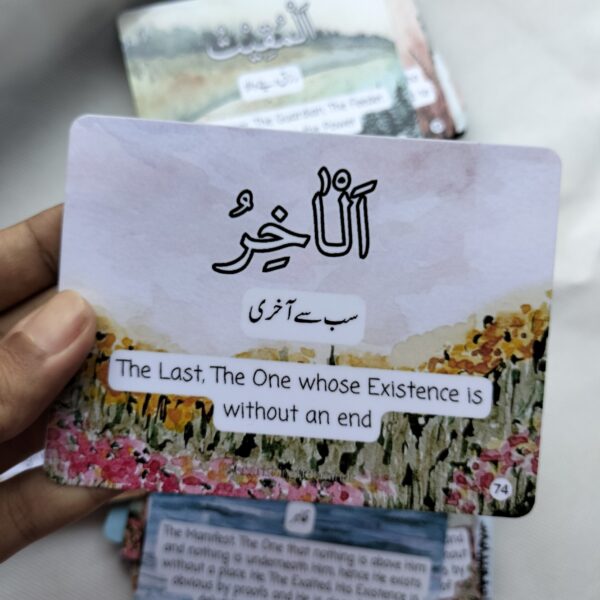 اَلْمُقِيْتُ
The Guardian, The Feeder
اَلْاٰخِرُ
سب سے آخری
The Last, The One whose Existence is
without an end
74
ظاہر
The Manifest. The One that nothing is above Him
and nothing is underneath Him, hence He exists
without a place. He, The Exalted, His Existence is
obvious by proofs and He is